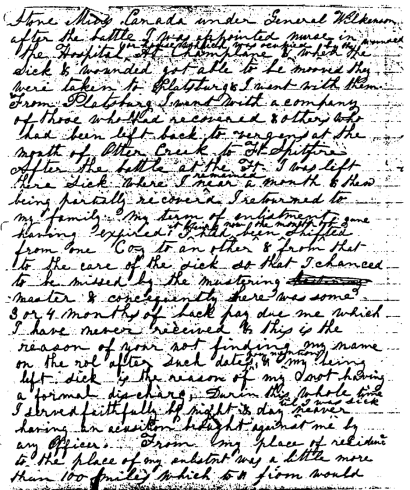 Stone Mill, Canada under General Wilkenson
after the battle I was appointed nurse in
the Hospital At Champlane & when the
sick & wounded got able to be mooved they
were taken to Platsburg & I went with them
From Platsburg I went with a company
of those who had recovered & others who
had been left back to vergens at the
mouth of Otter Creek to Ft Spitfire
After the battle at the Ft. I was left
here sick where I remained near a month & then
being partially recoverd I returned to
my family my term of enlistment
having expired I had been shifted
from one Co, to an other & from that
to the care of the sick so that I chanced
to be missed by the mustering
master & consequently there was some
3 or 4 months of back pay due me which
I have never received & this is the
reason of your not finding my name
on the rol after such date & my being
left sick is the reason of my not having
a formal discharge, Durin the whole time
I served faithfully by night & day neaver
having an acsition brought against me by
any Officer. From my place of residence
to the place of my enlistment was a little more
than 100 miles which to & from would